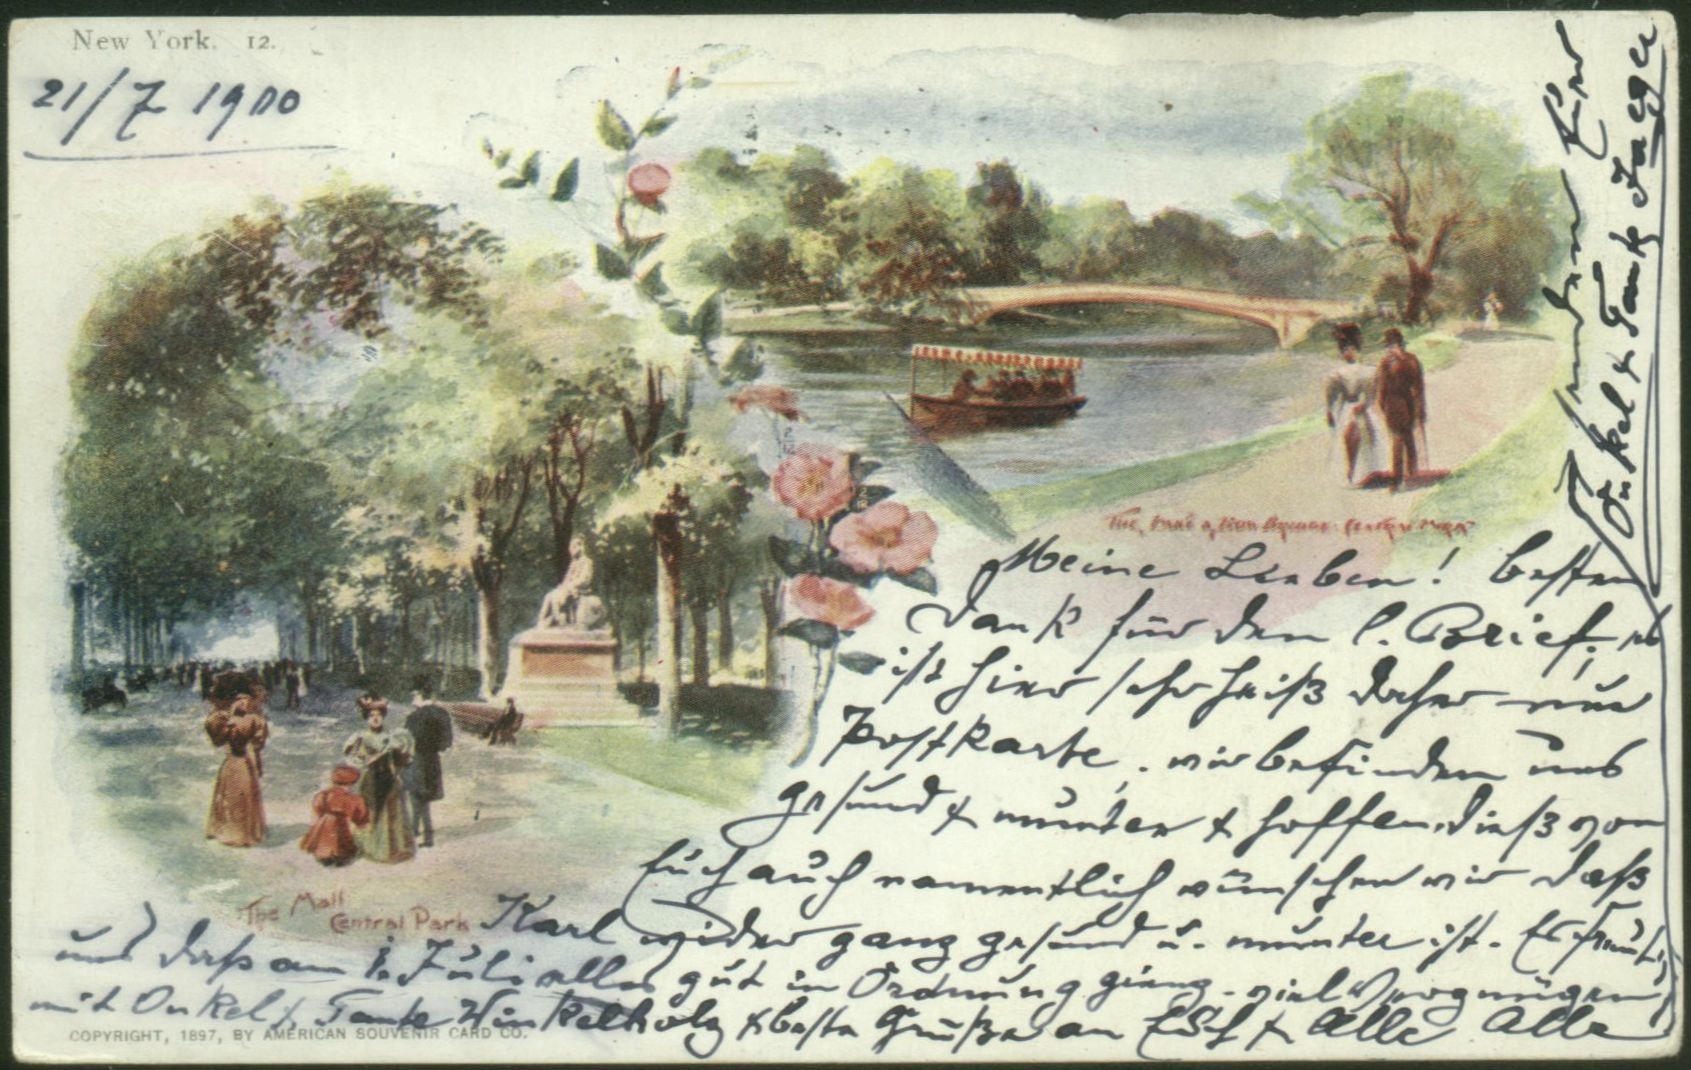 New York. 12.
21/7 1900
The Lake & Bow Bridge. Central Park
Meine Lieben! besten
Dank für den l. Brief, es
ist hier sehr heiß daher nur
Postkarte, wir befinden uns
gesund & munter & hoffen dieß von
Euch auch namentlich wünschen wir daß
The Mall
Central Park
Karl wider ganz gesund u. munter ist. Es freut
uns daß am 1. Juli alles gut in Ordnung gieng. viel Vergnügen
mit Onkel & Tante Winkelholz & beste Grüße an Euch & Alle Alle
senden Eure
Onkel & Tante Jaeger
COPYRIGHT, 1897, BY AMERICAN SOUVENIR CARD CO.